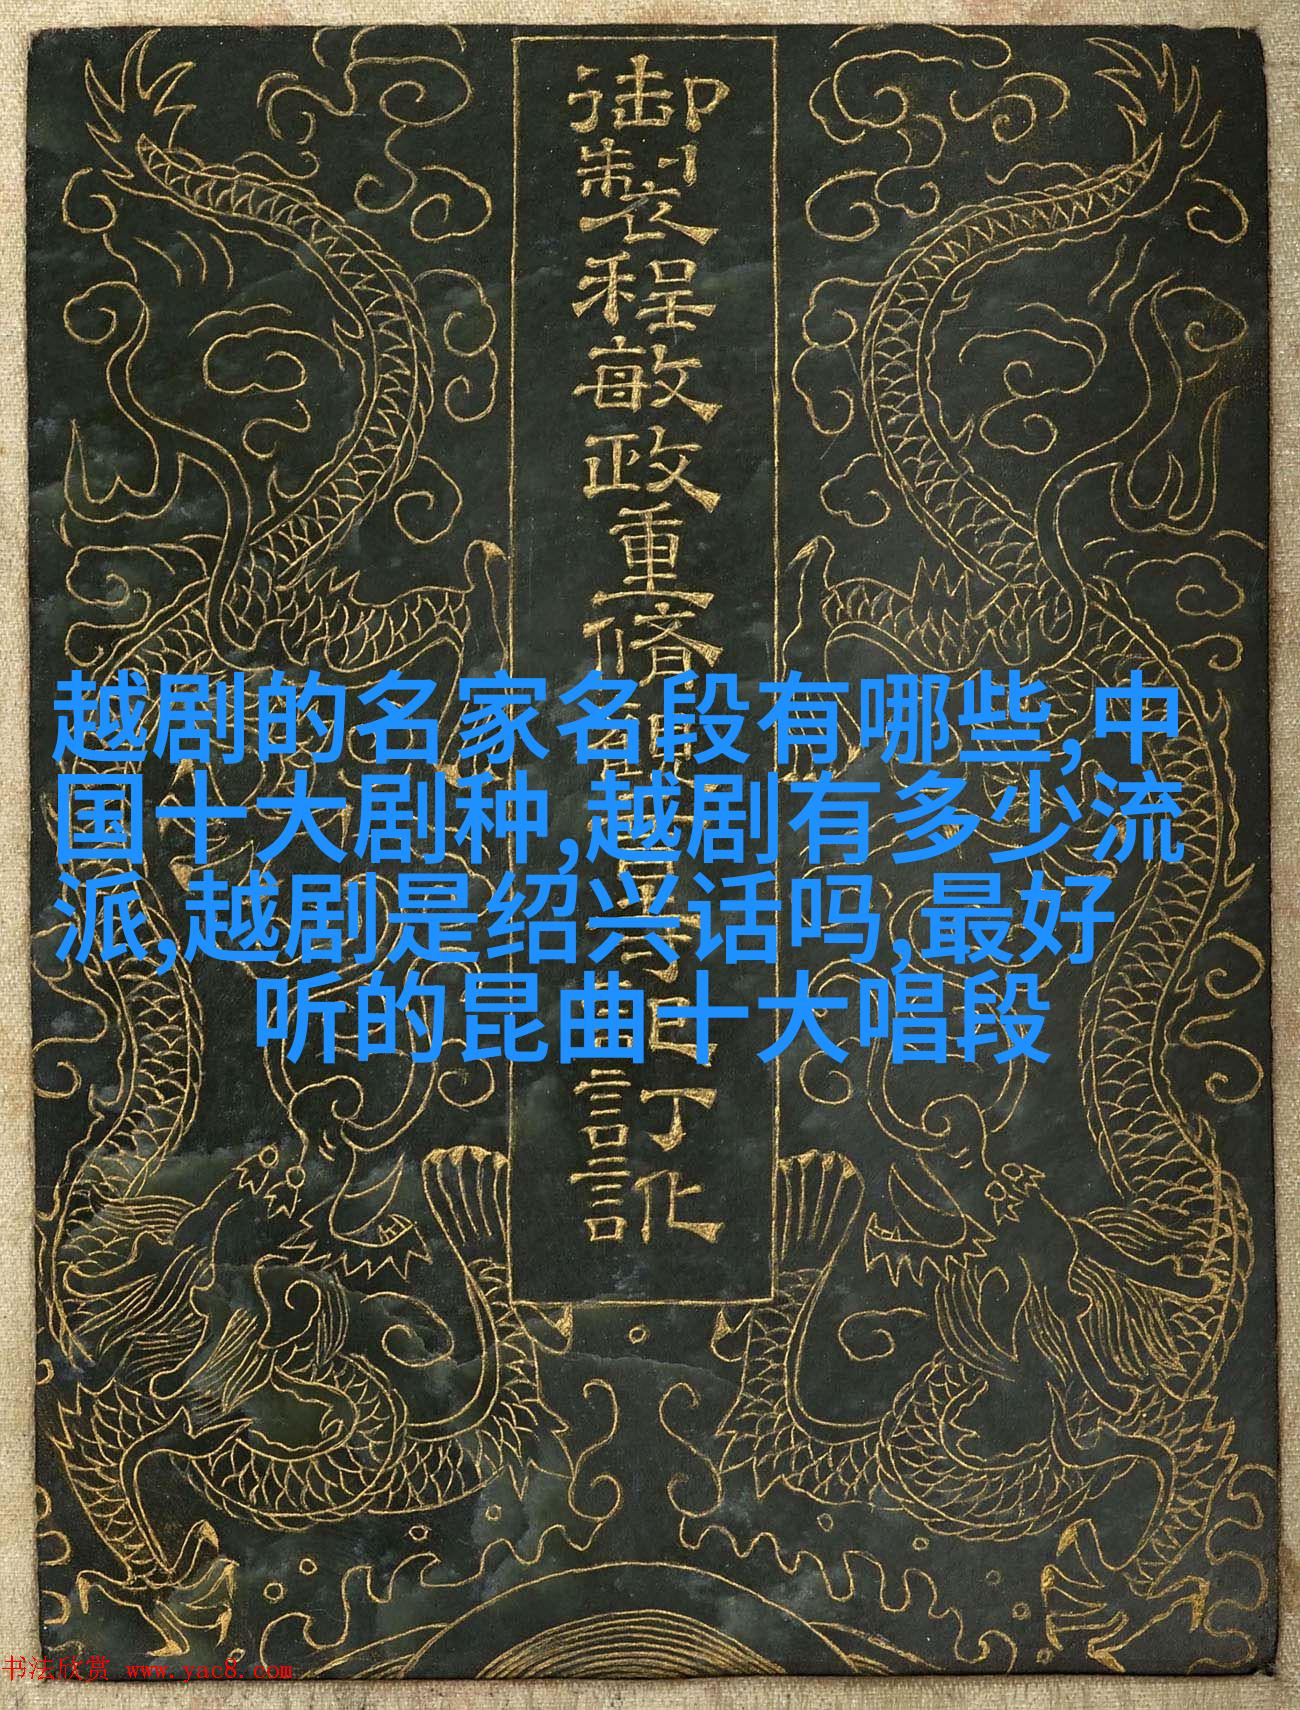 御製程敏政重脩訂訛
越剧的名家名段有哪些,中
国十大剧种,越剧有多少流
派,越剧是绍兴话吗,最好
听的昆曲十大唱段
书法欣赏 www.yac8.com